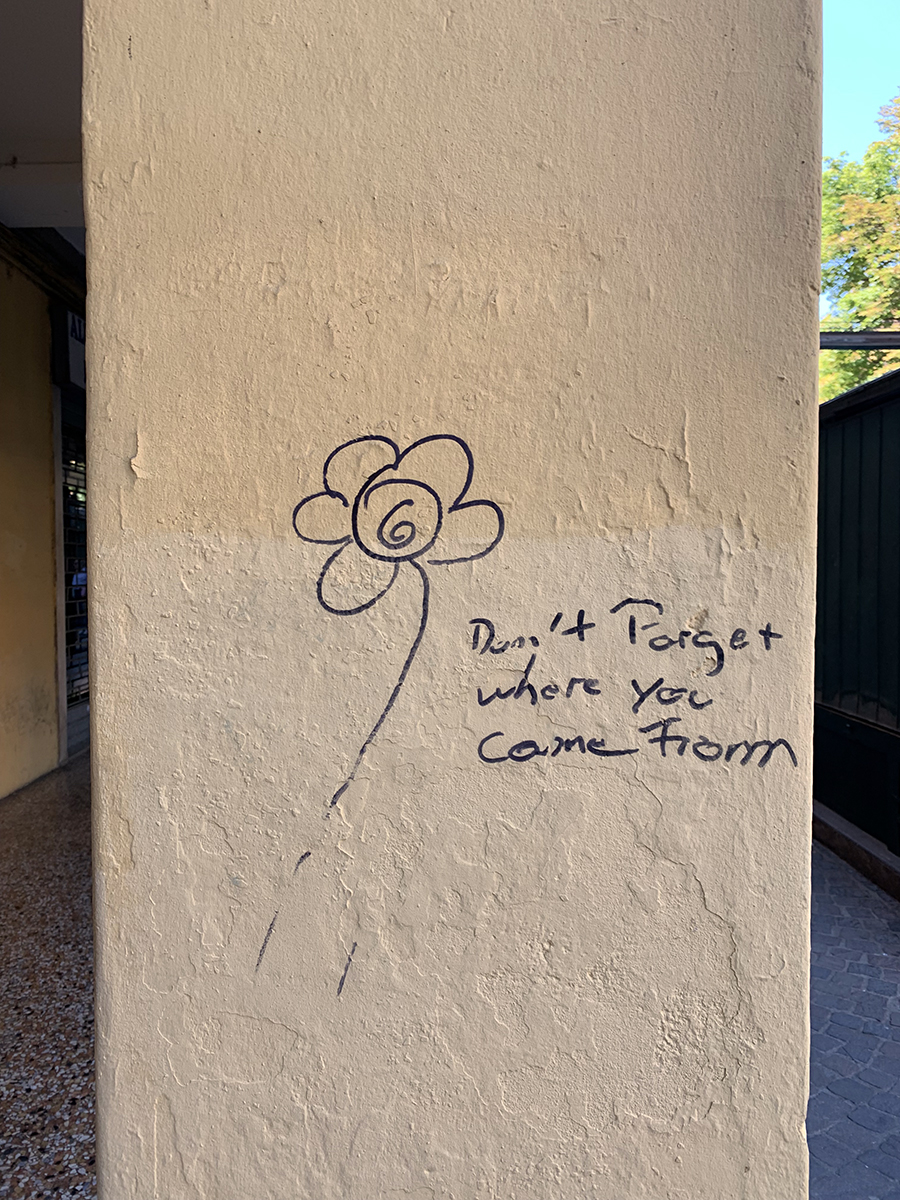 Don't Forget
where you
came From